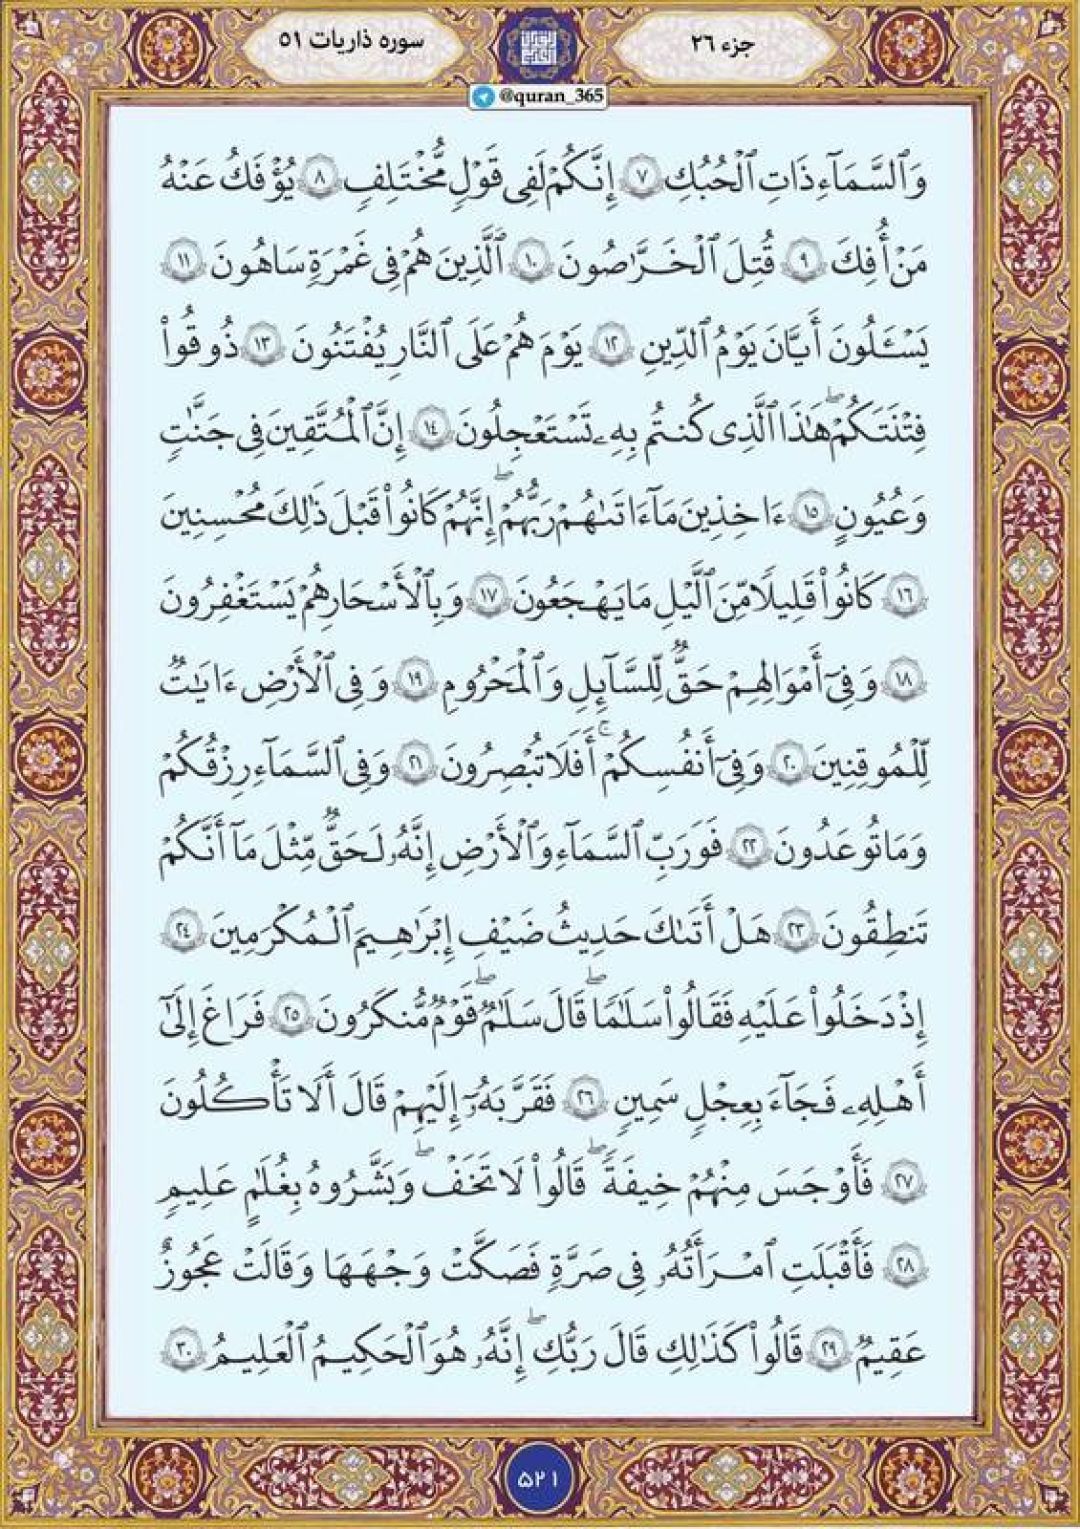 جزء ۲۶
سوره ذاریات ۵۱
@quran_365
وَٱلسَّمَآءِ ذَاتِ ٱلْحُبُكِ ۷ إِنَّكُمْ لَفِى قَوْلٍ مُّخْتَلِفٍ ۸ يُؤْفَكُ عَنْهُ
مَنْ أُفِكَ ۹ قُتِلَ ٱلْخَرَّٰصُونَ ۱۰ ٱلَّذِينَ هُمْ فِى غَمْرَةٍ سَاهُونَ ۱۱
يَسْـَٔلُونَ أَيَّانَ يَوْمُ ٱلدِّينِ ۱۲ يَوْمَ هُمْ عَلَى ٱلنَّارِ يُفْتَنُونَ ۱۳ ذُوقُوا۟
فِتْنَتَكُمْ هَٰذَا ٱلَّذِى كُنتُم بِهِۦ تَسْتَعْجِلُونَ ۱۴ إِنَّ ٱلْمُتَّقِينَ فِى جَنَّٰتٍ
وَعُيُونٍ ۱۵ ءَاخِذِينَ مَآ ءَاتَىٰهُمْ رَبُّهُمْ ۖ إِنَّهُمْ كَانُوا۟ قَبْلَ ذَٰلِكَ مُحْسِنِينَ
۱۶ كَانُوا۟ قَلِيلًا مِّنَ ٱلَّيْلِ مَا يَهْجَعُونَ ۱۷ وَبِٱلْأَسْحَارِ هُمْ يَسْتَغْفِرُونَ
۱۸ وَفِىٓ أَمْوَٰلِهِمْ حَقٌّ لِّلسَّآئِلِ وَٱلْمَحْرُومِ ۱۹ وَفِى ٱلْأَرْضِ ءَايَٰتٌ
لِّلْمُوقِنِينَ ۲۰ وَفِىٓ أَنفُسِكُمْ ۚ أَفَلَا تُبْصِرُونَ ۲۱ وَفِى ٱلسَّمَآءِ رِزْقُكُمْ
وَمَا تُوعَدُونَ ۲۲ فَوَرَبِّ ٱلسَّمَآءِ وَٱلْأَرْضِ إِنَّهُۥ لَحَقٌّ مِّثْلَ مَآ أَنَّكُمْ
تَنطِقُونَ ۲۳ هَلْ أَتَىٰكَ حَدِيثُ ضَيْفِ إِبْرَٰهِيمَ ٱلْمُكْرَمِينَ ۲۴
إِذْ دَخَلُوا۟ عَلَيْهِ فَقَالُوا۟ سَلَٰمًا ۖ قَالَ سَلَٰمٌ ۖ قَوْمٌ مُّنكَرُونَ ۲۵ فَرَاغَ إِلَىٰٓ
أَهْلِهِۦ فَجَآءَ بِعِجْلٍ سَمِينٍ ۲۶ فَقَرَّبَهُۥٓ إِلَيْهِمْ قَالَ أَلَا تَأْكُلُونَ
۲۷ فَأَوْجَسَ مِنْهُمْ خِيفَةً ۖ قَالُوا۟ لَا تَخَفْ ۖ وَبَشَّرُوهُ بِغُلَٰمٍ عَلِيمٍ
۲۸ فَأَقْبَلَتِ ٱمْرَأَتُهُۥ فِى صَرَّةٍ فَصَكَّتْ وَجْهَهَا وَقَالَتْ عَجُوزٌ
عَقِيمٌ ۲۹ قَالُوا۟ كَذَٰلِكِ قَالَ رَبُّكِ ۖ إِنَّهُۥ هُوَ ٱلْحَكِيمُ ٱلْعَلِيمُ ۳۰
۵۲۱